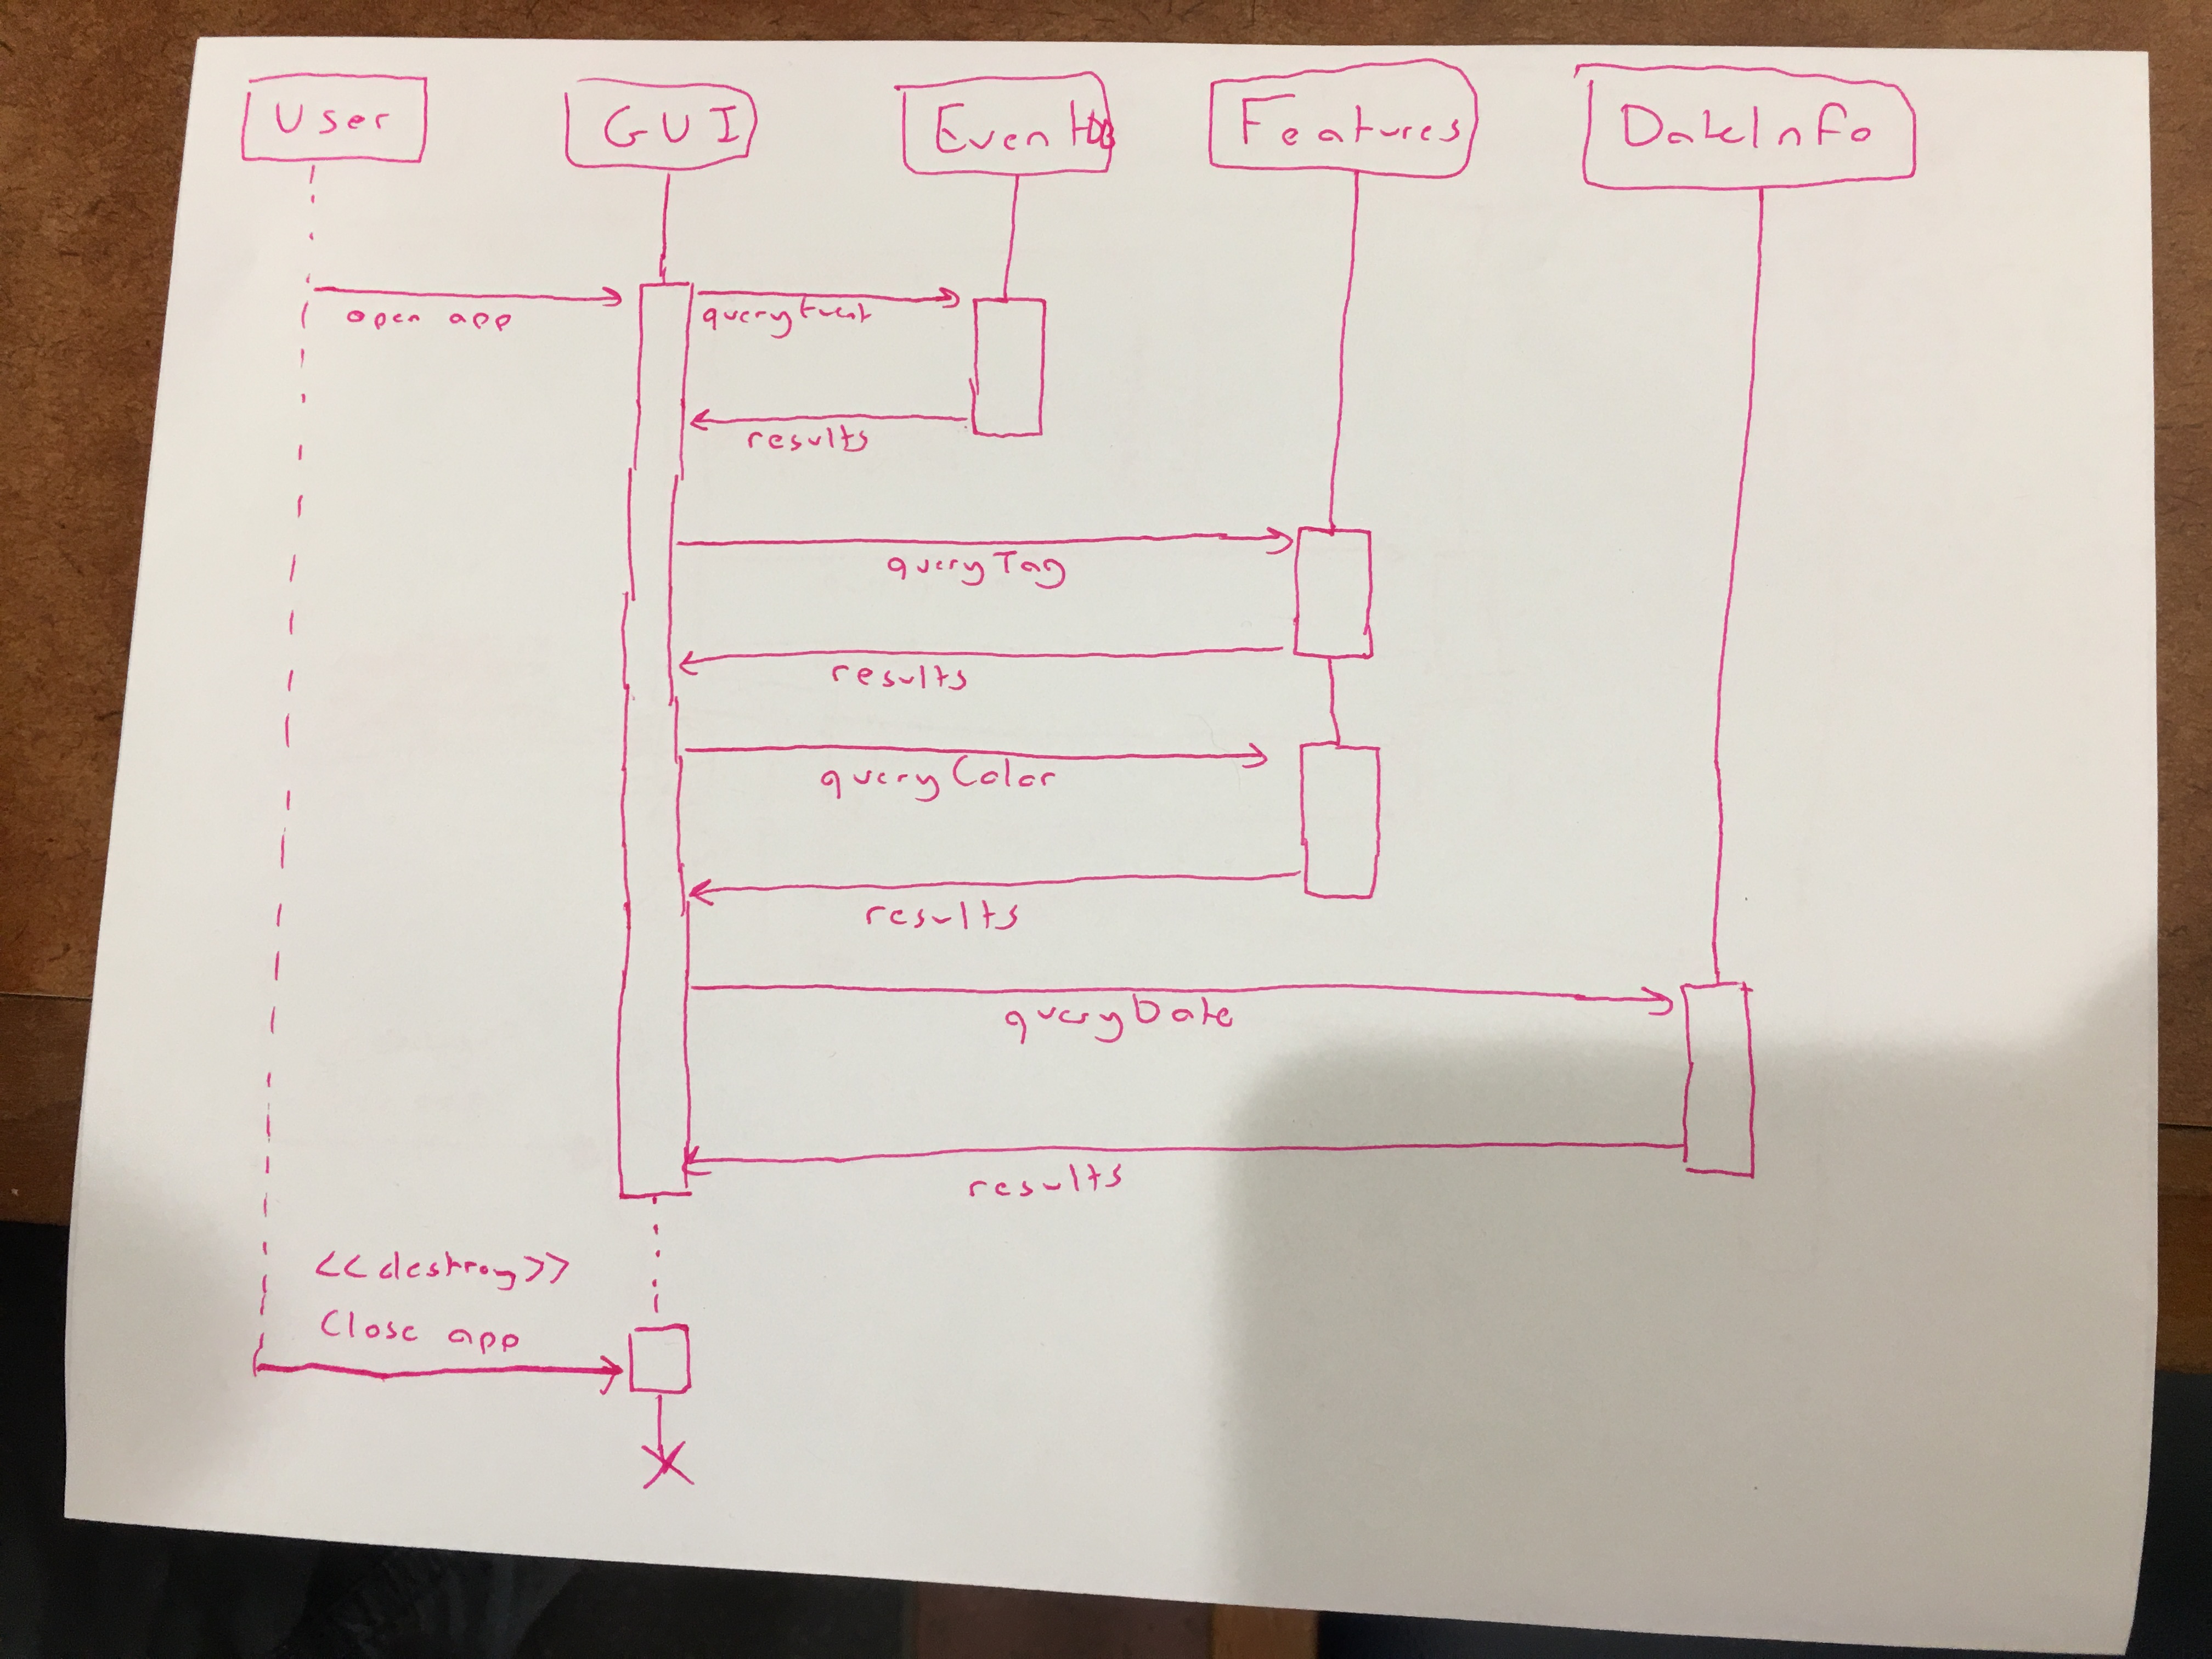 User GUI EventDB Features DateInfo
open app queryEvent
results
queryTag
results
queryColor
results
queryDate
results
<<destroy>>
Close app